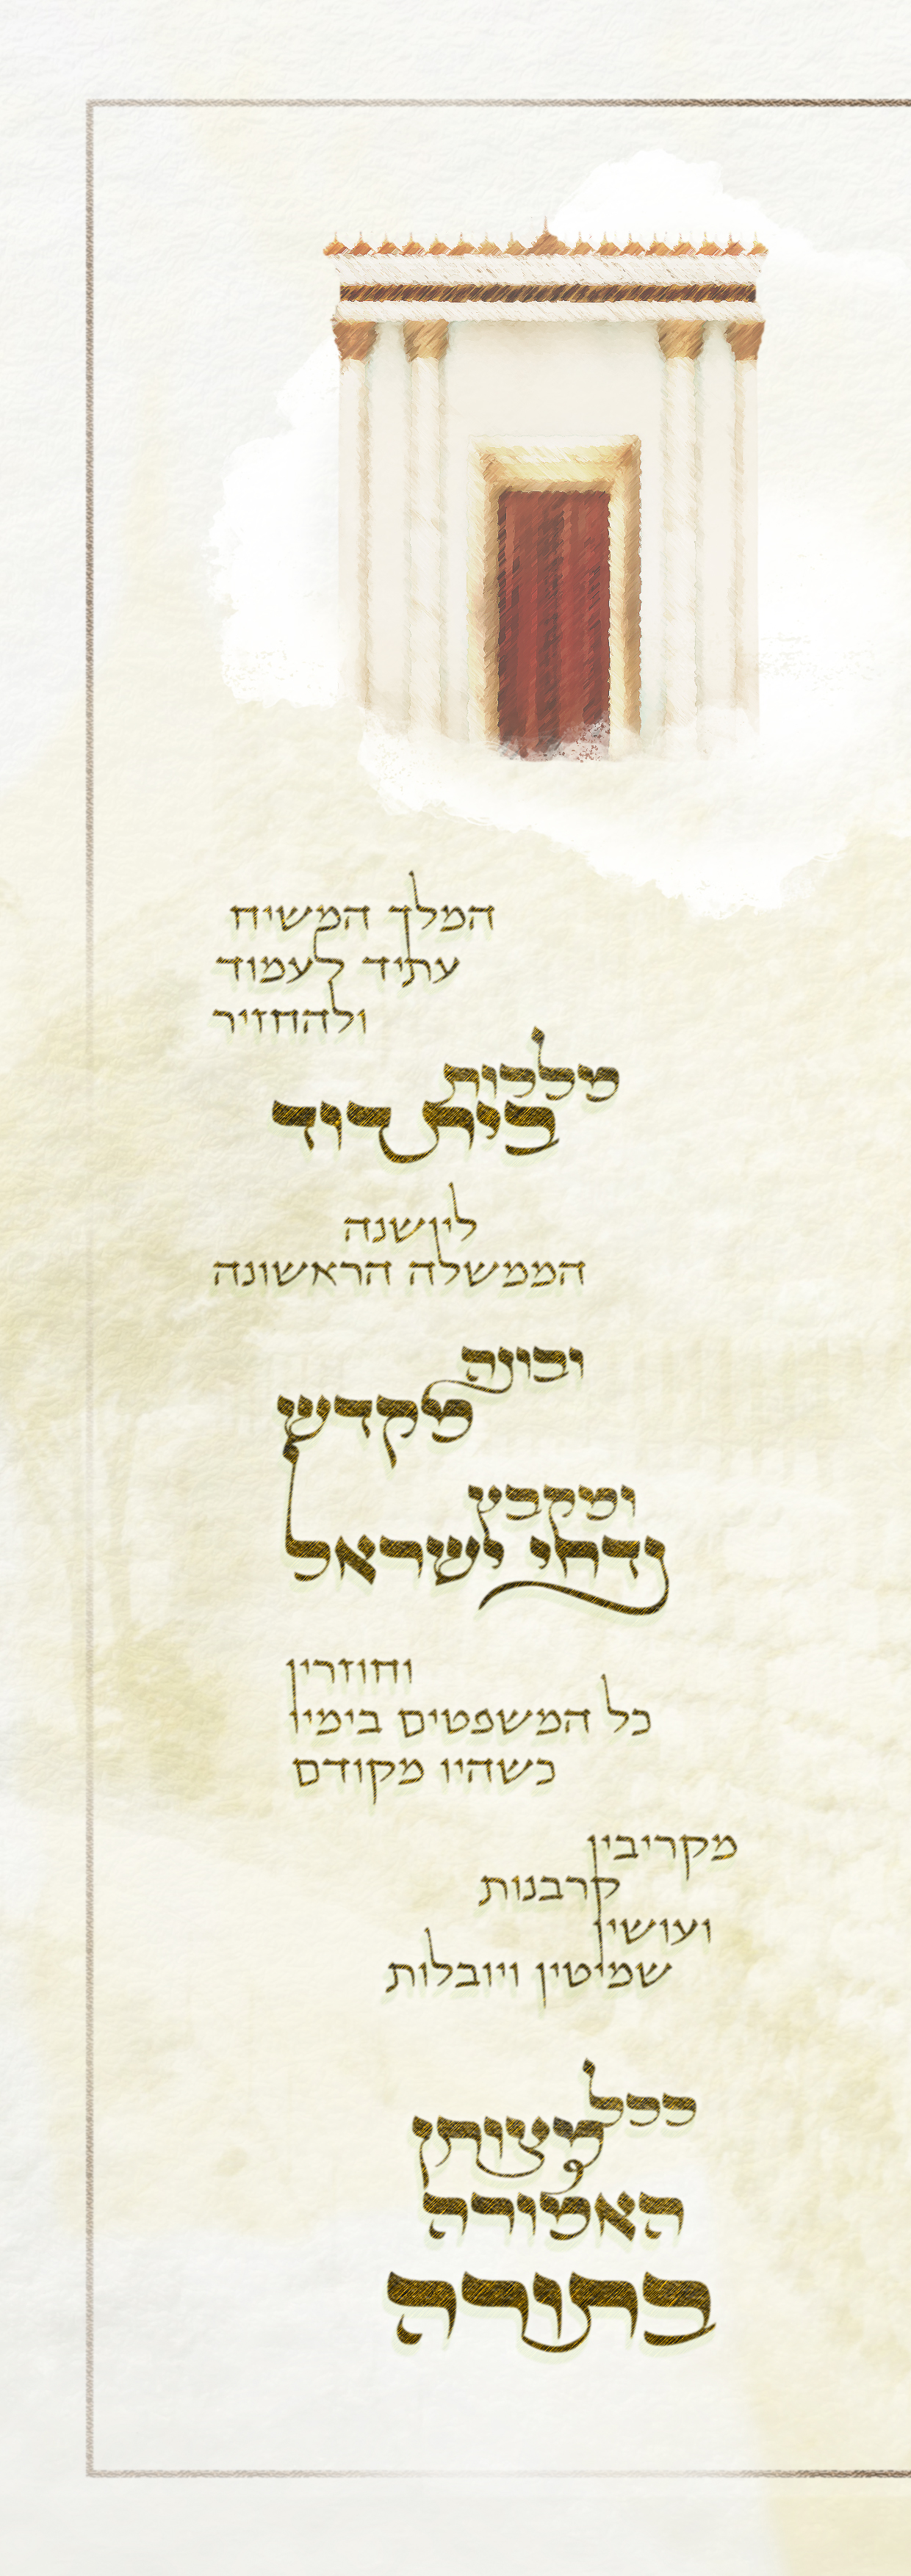 המלך המשיח
עתיד לעמוד
ולהחזיר
מלכות
בית דוד
ליושנה
הממשלה הראשונה
ובונה
מקדש
ומקבץ
נדחי ישראל
וחוזרין
כל המשפטים בימיו
כשהיו מקודם
מקריבין
קרבנות
ועושין
שמיטין ויובלות
ככל
מצותן
האמורה
בתורה